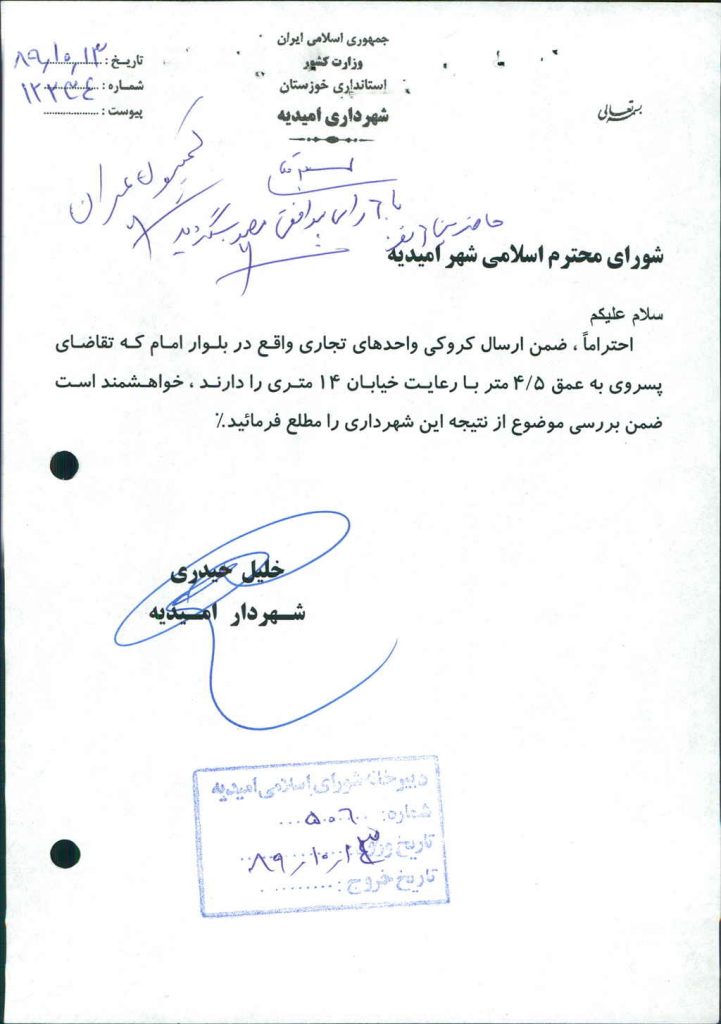 جمهوری اسلامی ایران
وزارت کشور
استانداری خوزستان
شهرداری امیدیه
بسمه تعالی
تاریخ : ۸۹/۱۰/۱۳
شماره : ۱۲۲۴۴
پیوست :
کمیسیون عمران
بسمه تعالی
حاضرین ۶ نفر
با ۶ رای موافق مصوب گردید
شورای محترم اسلامی شهر امیدیه
سلام علیکم
احتراماً ، ضمن ارسال کروکی واحدهای تجاری واقع در بلوار امام که تقاضای
پسروی به عمق ۴/۵ متر با رعایت خیابان ۱۴ متری را دارند ، خواهشمند است
ضمن بررسی موضوع از نتیجه این شهرداری را مطلع فرمائید.٪
خلیل حیدری
شهردار امیدیه
دبیرخانه شورای اسلامی امیدیه
شماره: ۵۰۰۶
تاریخ ورود: ۸۹/۱۰/۱۳
تاریخ خروج :